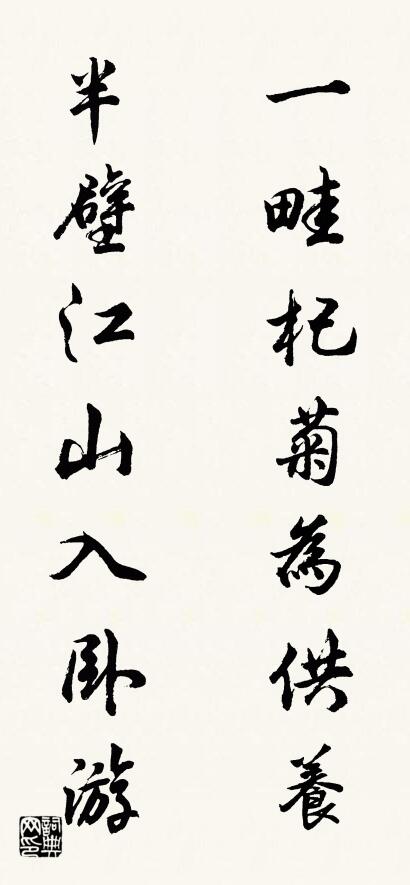 一畦杞菊為供養
半壁江山入卧游
詞典网印